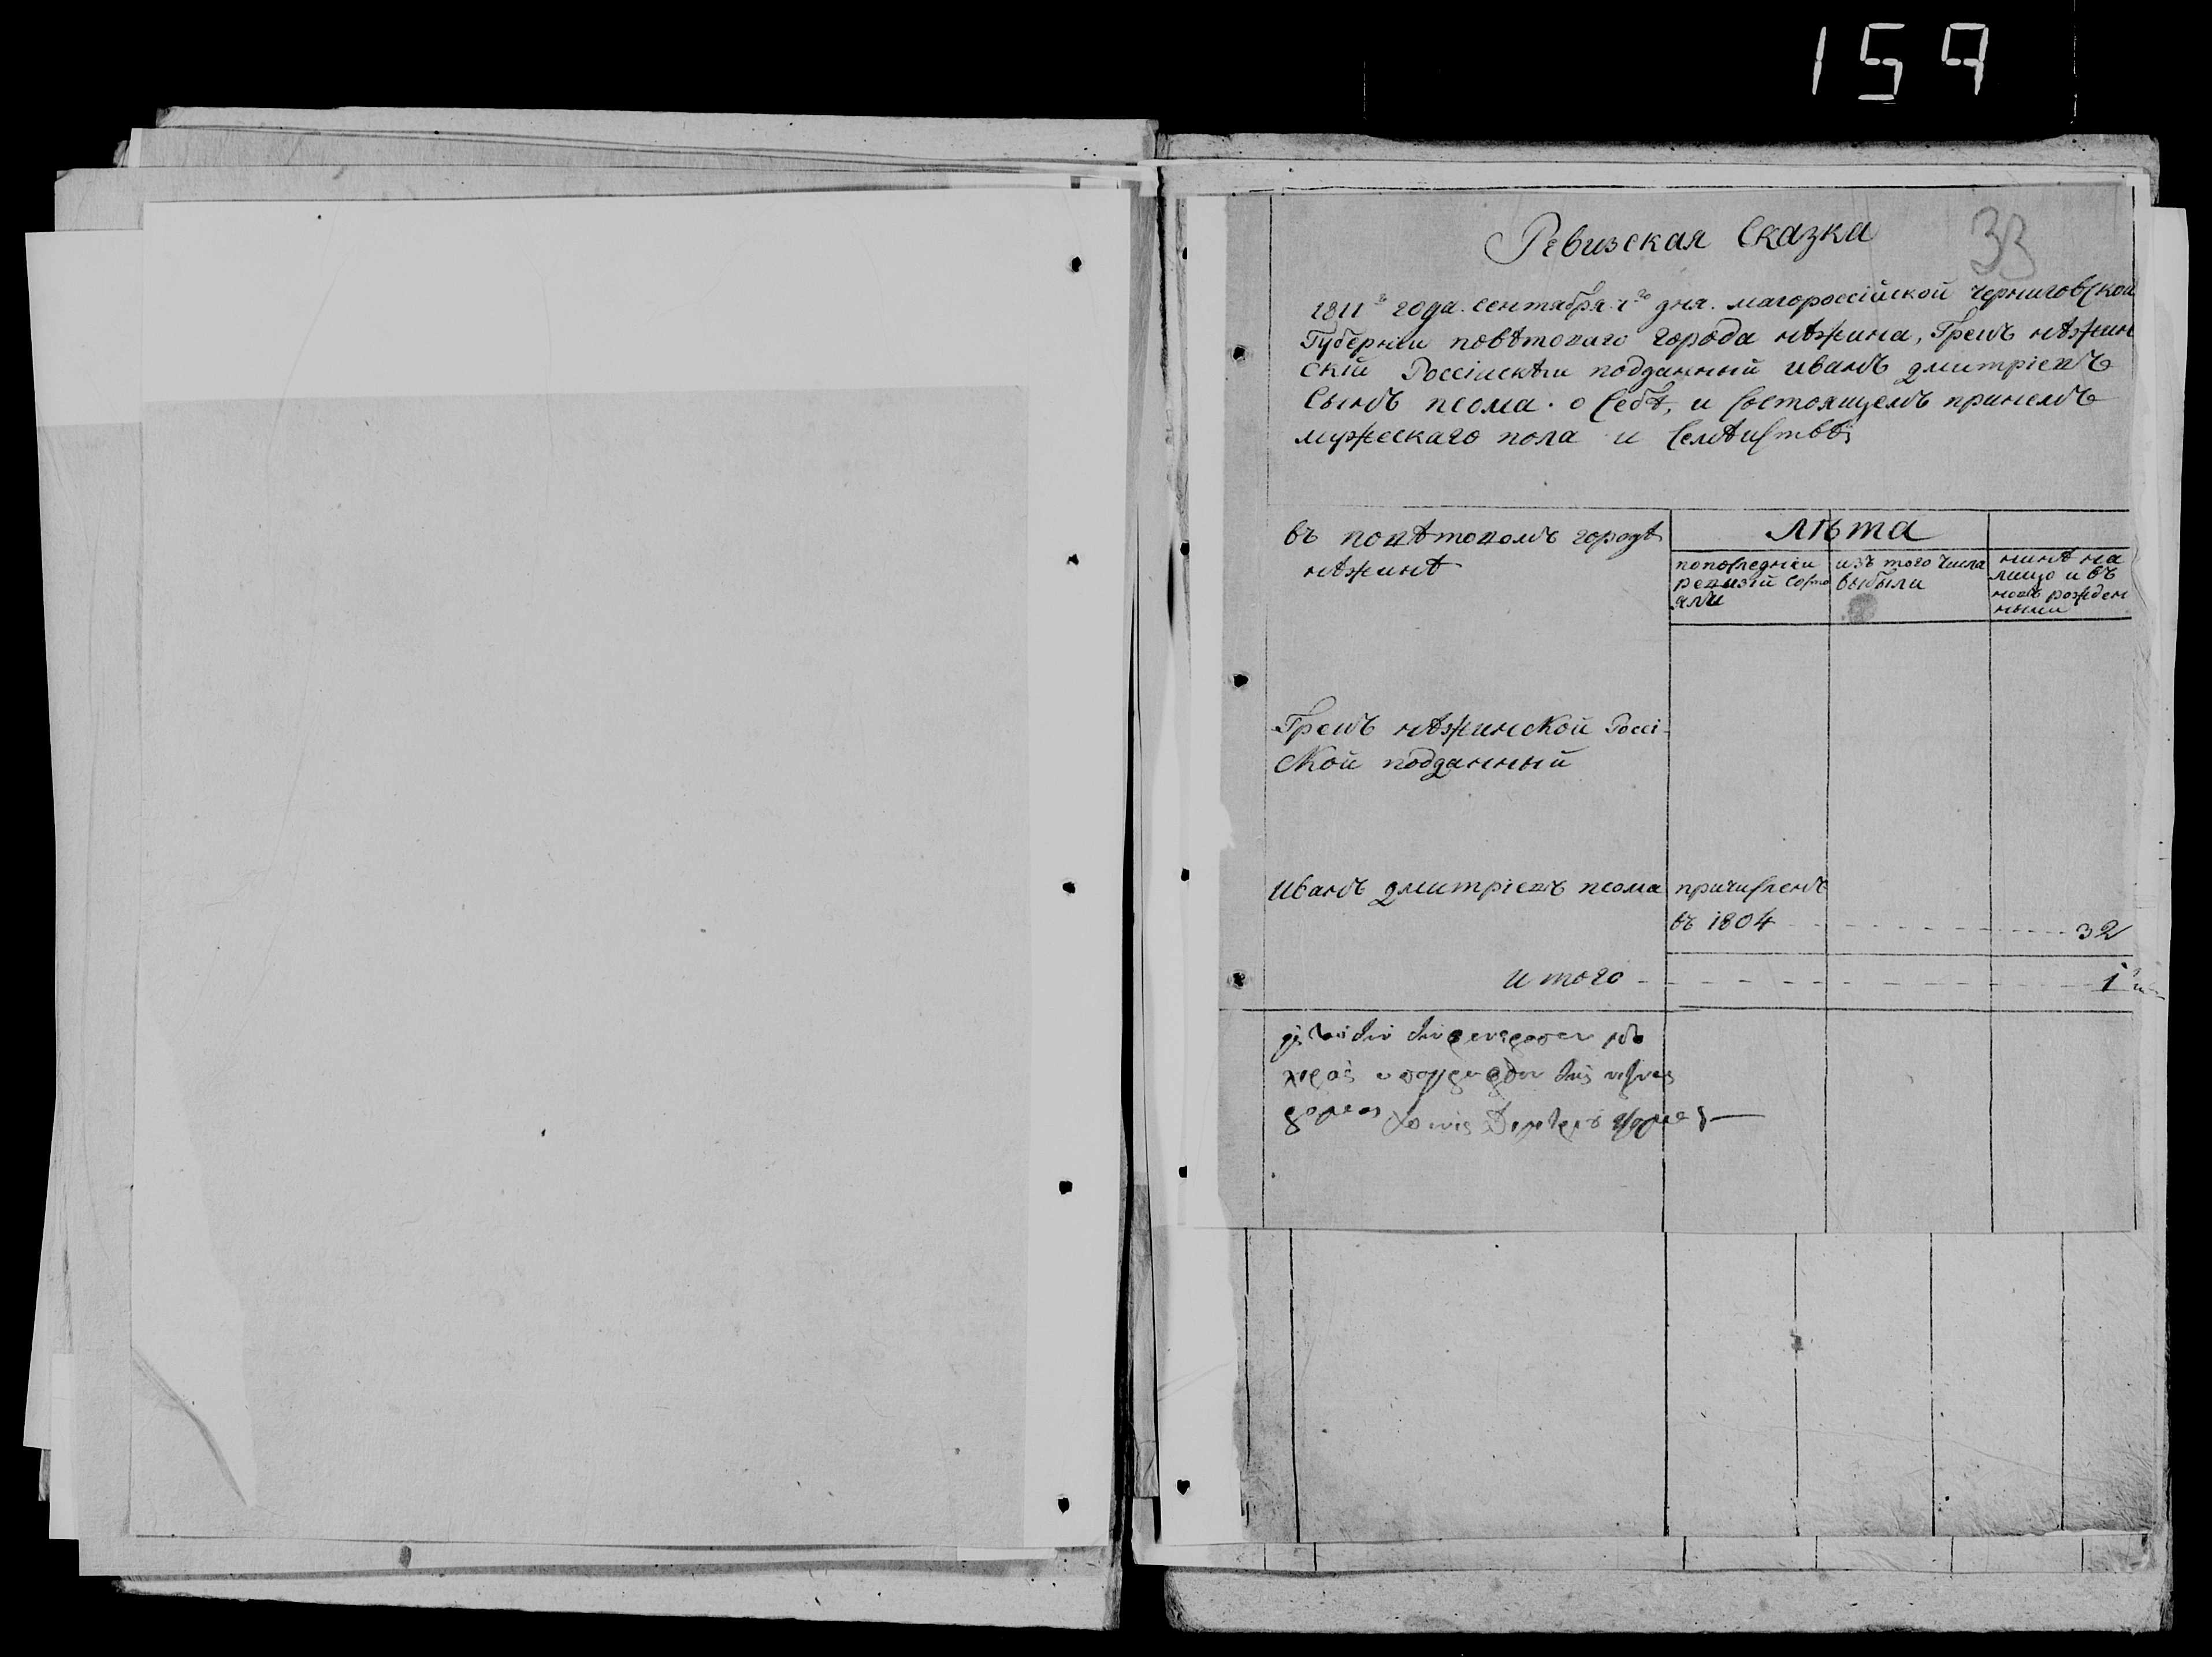 159
33
Ревизская Сказка
1811 года. сентября 1го дня. малороссійской черниговской
Губерніи повѣтоваго города нѣжина, Грекъ нѣжин
скій Россійскій подданный иванъ дмитріевъ
Сынъ псома. о себѣ, и состоящемъ принемъ
мужескаго пола и Семѣйствѣ
въ повѣтовомъ городѣ
нѣжинѣ
лѣта
попослѣдніи
ревизіи состо
яли
изъ того числа
выбыли
нинѣ на
лицо и въ
новь рожден
ными
Грекъ нѣжинской Россі-
ской подданный
иванъ дмитріевъ псома
причисленъ
въ 1804
32
итого
1